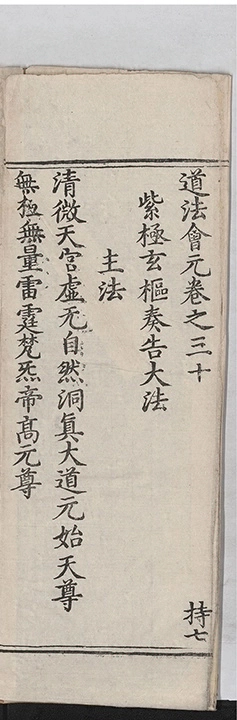 道法會元卷之三十
持七
紫極玄樞奏告大法
主法
清微天宮虛无自然洞真大道元始天尊
無極無量雷霆梵炁帝髙元尊